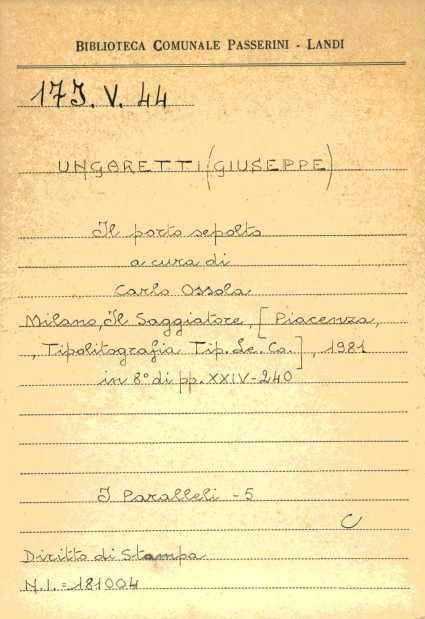 BIBLIOTECA COMUNALE PASSERINI - LANDI
17J. V. 44
UNGARETTI (GIUSEPPE)
Il porto sepolto
a cura di
Carlo Ossola
Milano, Il Saggiatore, [Piacenza,
, Tipolitografia Tip. Le. Co.], 1981
in 8° di pp. XXIV-240
I Paralleli - 5
C
Diritto di Stampa
N.I. = 181004